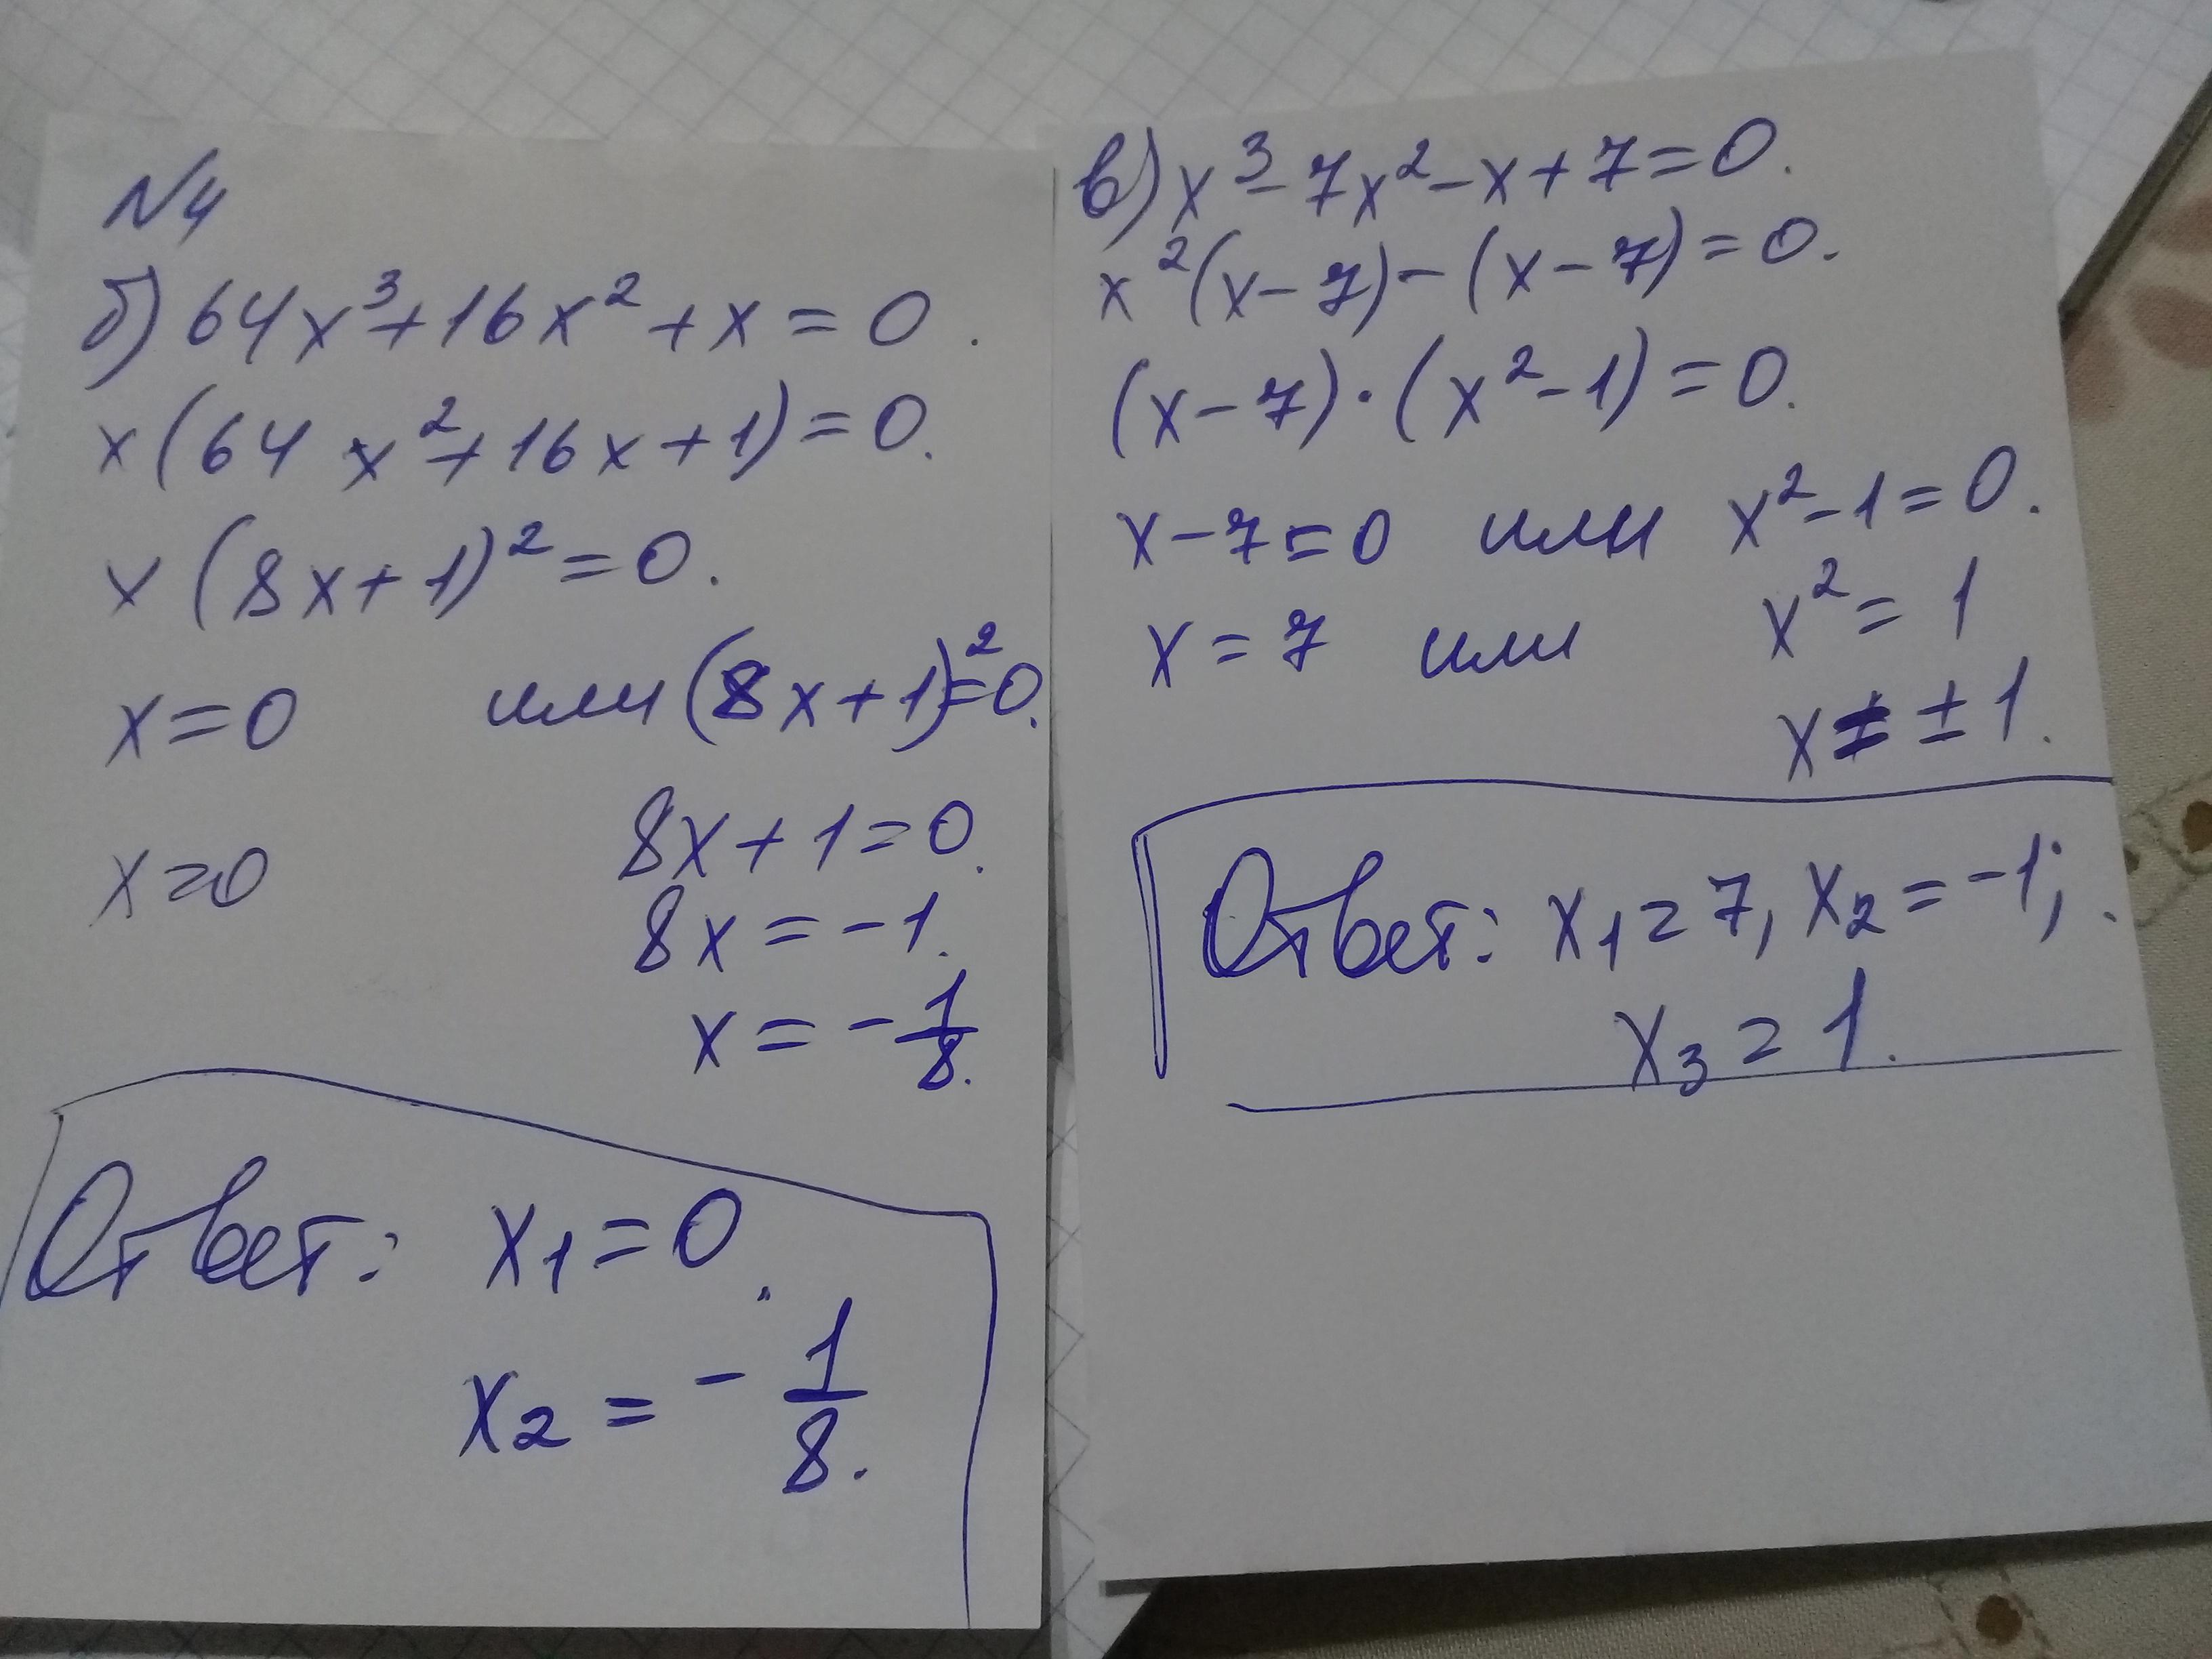 №4
б) 64x³+16x²+x=0.
x(64x²+16x+1)=0.
x(8x+1)²=0.
x=0 или (8x+1)²=0.
x=0 8x+1=0.
8x=-1.
x=-1/8.
Ответ: x₁=0.
x₂=-1/8.
в) x³-7x²-x+7=0.
x²(x-7)-(x-7)=0.
(x-7)·(x²-1)=0.
x-7=0 или x²-1=0.
x=7 или x²=1
x=±1.
Ответ: x₁=7, x₂=-1;.
x₃=1.